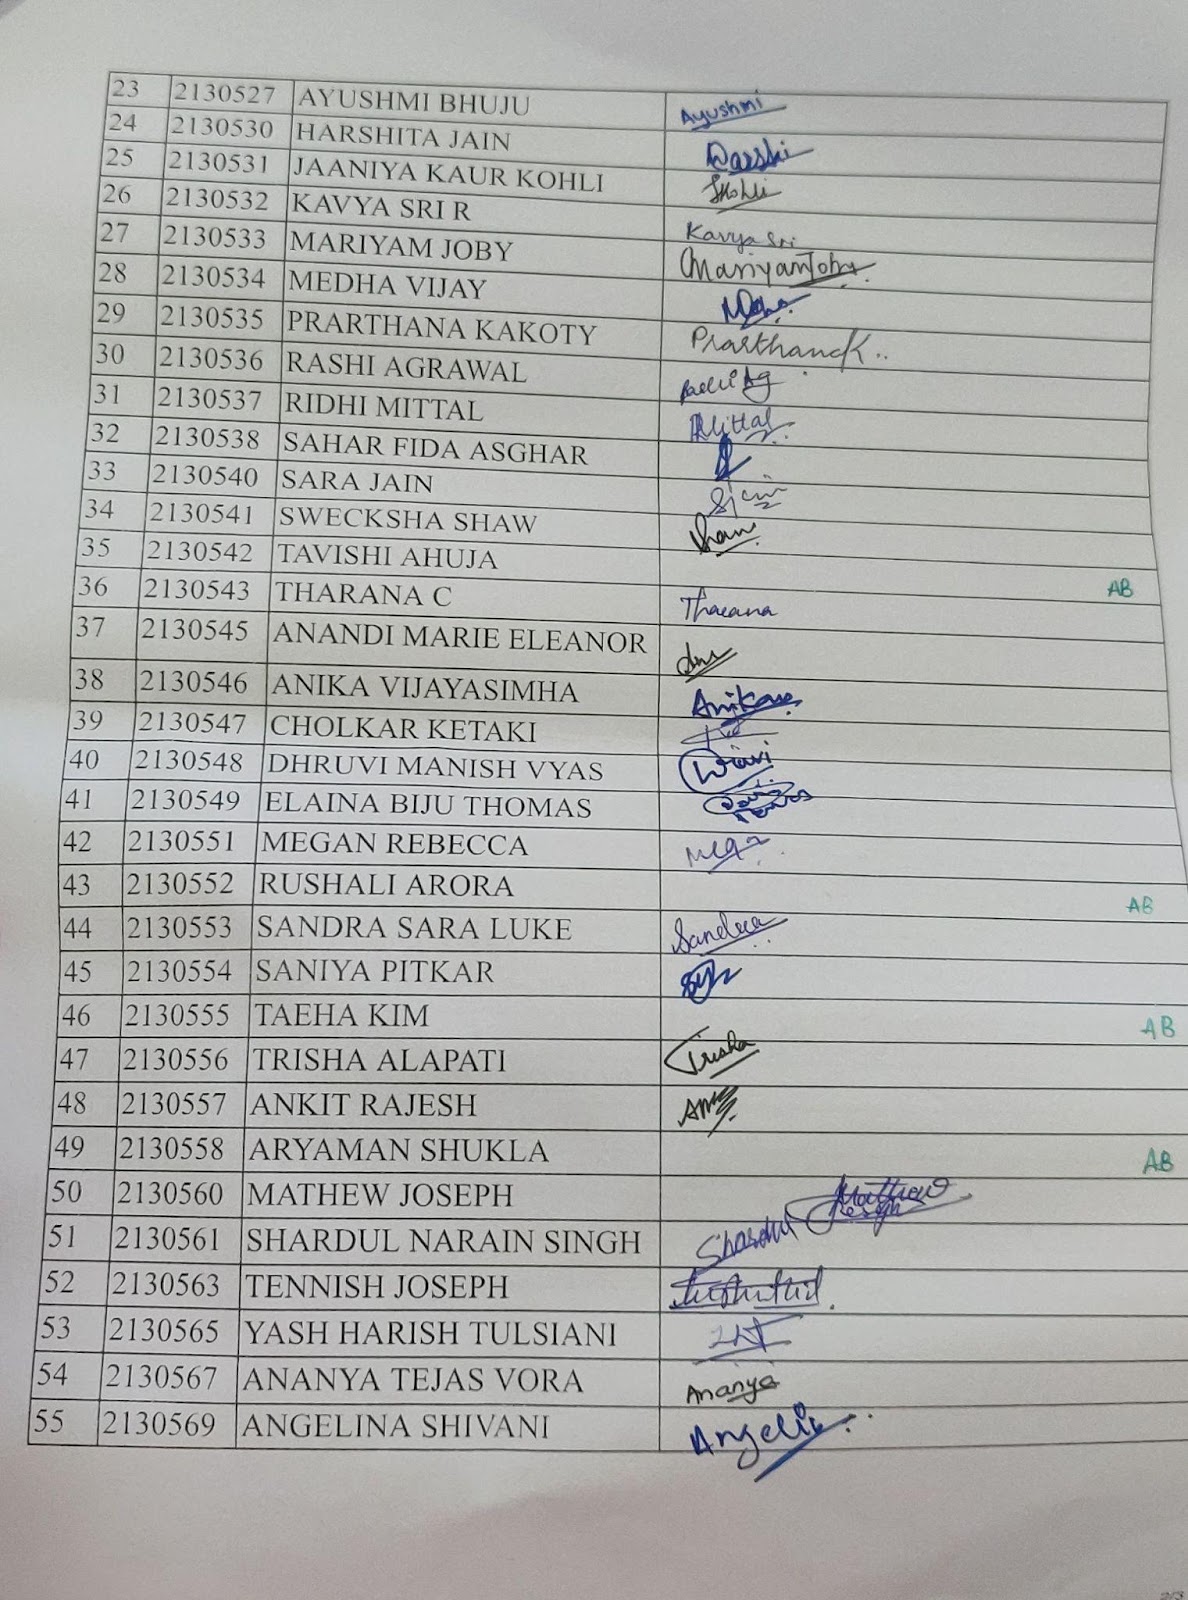 23 2130527 AYUSHMI BHUJU Ayushmi
24 2130530 HARSHITA JAIN
25 2130531 JAANIYA KAUR KOHLI Jkohli
26 2130532 KAVYA SRI R Kavya Sri
27 2130533 MARIYAM JOBY Mariyam Joby
28 2130534 MEDHA VIJAY
29 2130535 PRARTHANA KAKOTY PrarthanaK..
30 2130536 RASHI AGRAWAL
31 2130537 RIDHI MITTAL RMittal
32 2130538 SAHAR FIDA ASGHAR
33 2130540 SARA JAIN Sjain
34 2130541 SWECKSHA SHAW Shaw
35 2130542 TAVISHI AHUJA AB
36 2130543 THARANA C Tharana
37 2130545 ANANDI MARIE ELEANOR
38 2130546 ANIKA VIJAYASIMHA
39 2130547 CHOLKAR KETAKI
40 2130548 DHRUVI MANISH VYAS
41 2130549 ELAINA BIJU THOMAS
42 2130551 MEGAN REBECCA
43 2130552 RUSHALI ARORA AB
44 2130553 SANDRA SARA LUKE Sandra
45 2130554 SANIYA PITKAR
46 2130555 TAEHA KIM AB
47 2130556 TRISHA ALAPATI Trisha
48 2130557 ANKIT RAJESH
49 2130558 ARYAMAN SHUKLA AB
50 2130560 MATHEW JOSEPH Mathew Joseph
51 2130561 SHARDUL NARAIN SINGH Shardul
52 2130563 TENNISH JOSEPH
53 2130565 YASH HARISH TULSIANI
54 2130567 ANANYA TEJAS VORA Ananya
55 2130569 ANGELINA SHIVANI